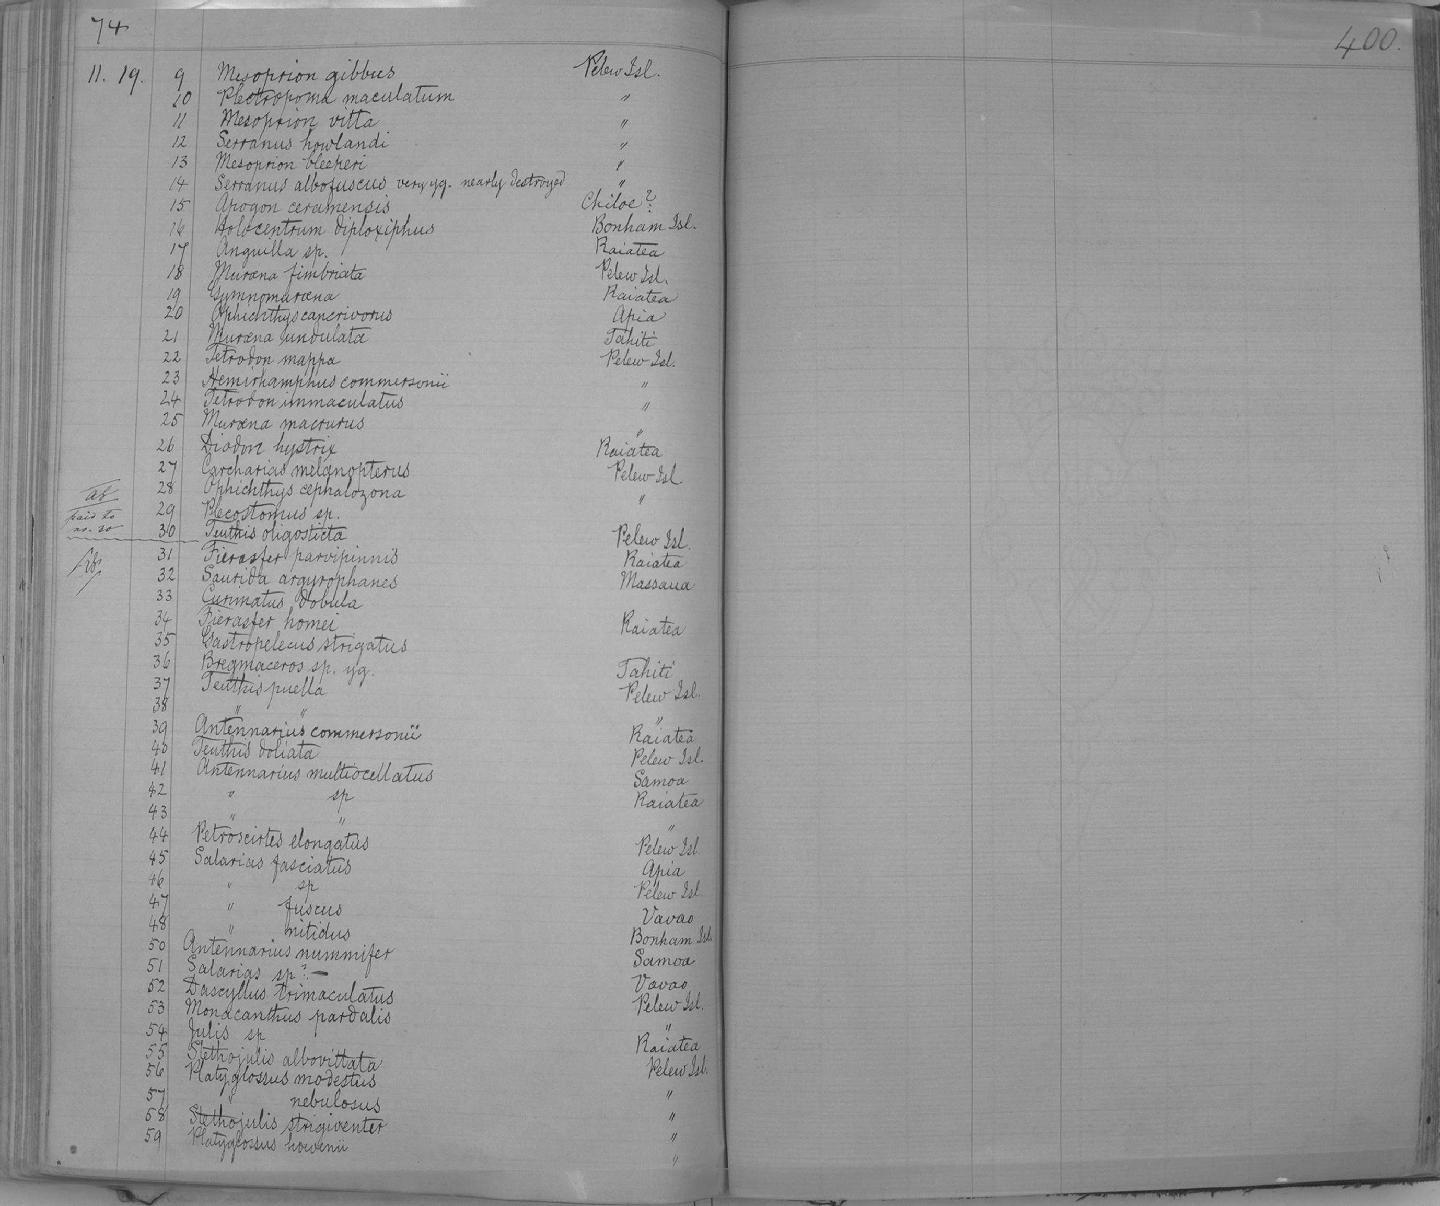 74
400.
11. 19. 9 Mesoprion gibbus Pelew Isl.
10 Plectropoma maculatum "
11 Mesoprion vitta "
12 Serranus howlandi "
13 Mesoprion bleekeri "
14 Serranus albofuscus very yg. nearly destroyed "
15 Apogon ceramensis Chiloe?
16 Holocentrum diploxiphus Bonham Isl.
17 Anguilla sp. Raiatea
18 Muraena fimbriata Pelew Isl.
19 Gymnomuraena Raiatea
20 Ophichthys cancrivorus Apia
21 Muraena undulata Tahiti
22 Tetrodon mappa Pelew Isl.
23 Hemirhamphus commersonii "
24 Tetrodon immaculatus "
25 Muraena macrurus "
26 Diodon hystrix Raiatea
27 Carcharias melanopterus Pelew Isl
28 Ophichthys cephalozona "
29 Plecostomus sp.
paid to
no. 30
30 Teuthis oligosticta Pelew Isl.
31 Fierasfer parvipinnis Raiatea
32 Saurida argyrophanes Massaua
33 Curimatus dobula
34 Fierasfer homei Raiatea
35 Gastropelecus strigatus
36 Bregmaceros sp. yg. Tahiti
37 Teuthis puella Pelew Isl.
38 " " "
39 Antennarius commersonii Raiatea
40 Teuthis doliata Pelew Isl.
41 Antennarius multiocellatus Samoa
42 " sp Raiatea
43 " " "
44 Petroscirtes elongatus Pelew Isl
45 Salarias fasciatus Apia
46 " sp Pelew Isl
47 " fuscus Vavao
48 " nitidus Bonham Isl.
50 Antennarius nummifer Samoa
51 Salarias sp? — Vavao
52 Dascyllus trimaculatus Pelew Isl.
53 Monacanthus pardalis "
54 Julis sp Raiatea
55 Stethojulis albovittata Pelew Isl.
56 Platyglossus modestus "
57 " nebulosus "
58 Stethojulis strigiventer "
59 Platyglossus "